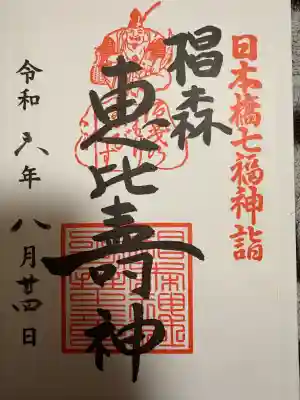 日本橋七福神詣
椙森
恵比壽神
令和六年八月廿四日